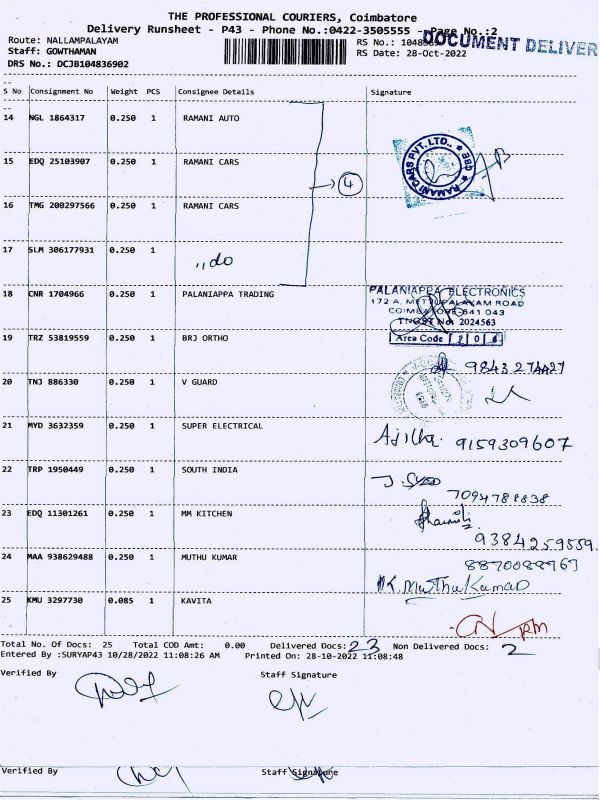 THE PROFESSIONAL COURIERS, Coimbatore
Delivery Runsheet - P43 - Phone No.:0422-3505555 - Page No.:2
Route: NALLAMPALAYAM
RS No.:
DOCUMENT DELIVER
Staff: GOWTHAMAN
RS Date: 28-Oct-2022
DRS No.: DCJB104836902
S No Consignment No Weight PCS Consignee Details Signature
14 NGL 1864317 0.250 1 RAMANI AUTO
15 EDQ 25103907 0.250 1 RAMANI CARS
RAMANI CARS PVT. LTD., ★ CBE ★
4
16 TMG 200297566 0.250 1 RAMANI CARS
17 SLM 306177931 0.250 1 ,,do
18 CNR 1704966 0.250 1 PALANIAPPA TRADING
PALANIAPPA ELECTRONICS
172 A, METTUPALAYAM ROAD
COIMBATORE-641 043
TNGST No. 2024563
19 TRZ 53819559 0.250 1 BRJ ORTHO
Area Code
9843274427
20 TNJ 886330 0.250 1 V GUARD
21 MYD 3632359 0.250 1 SUPER ELECTRICAL
9159309607
22 TRP 1950449 0.250 1 SOUTH INDIA
7094788838
23 EDQ 11301261 0.250 1 MM KITCHEN
9384259559
24 MAA 938629488 0.250 1 MUTHU KUMAR
K. MuthuKumar
25 KMU 3297730 0.085 1 KAVITA
Total No. Of Docs: 25 Total COD Amt: 0.00 Delivered Docs: 23 Non Delivered Docs: 2
Entered By :SURYAP43 10/28/2022 11:08:26 AM Printed On: 28-10-2022 11:08:48
Verified By Staff Signature
Verified By Staff Signature